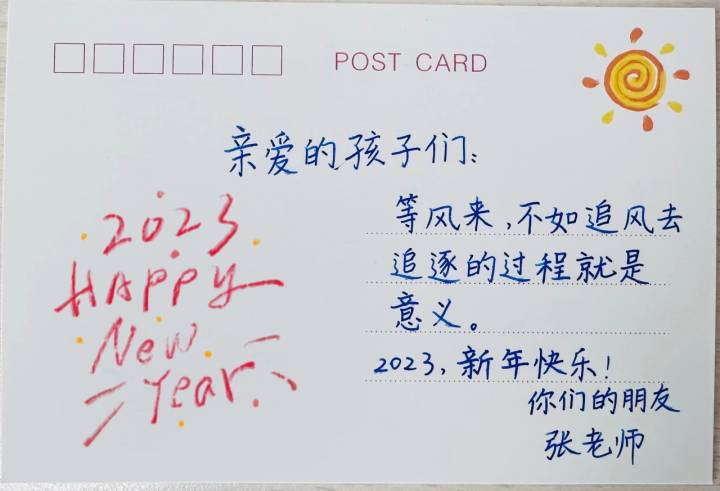 POST CARD
亲爱的孩子们:
等风来,不如追风去
追逐的过程就是
意义。
2023,新年快乐!
你们的朋友
张老师
2023
HAPPY
New
Year